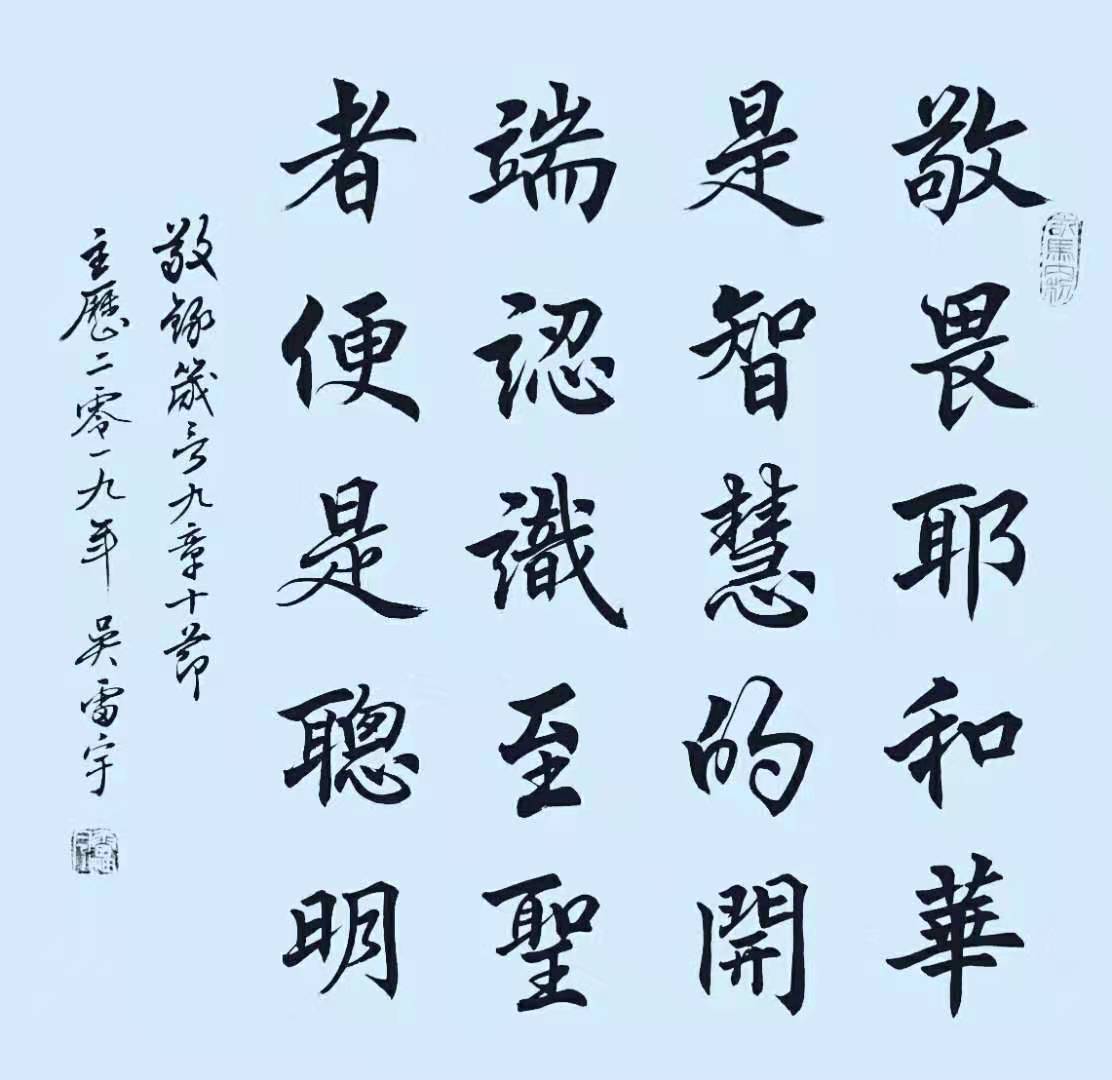 敬畏耶和華
是智慧的開
端認識至聖
者便是聰明
敬錄箴言九章十節
主歷二零一九年 吳雷宇